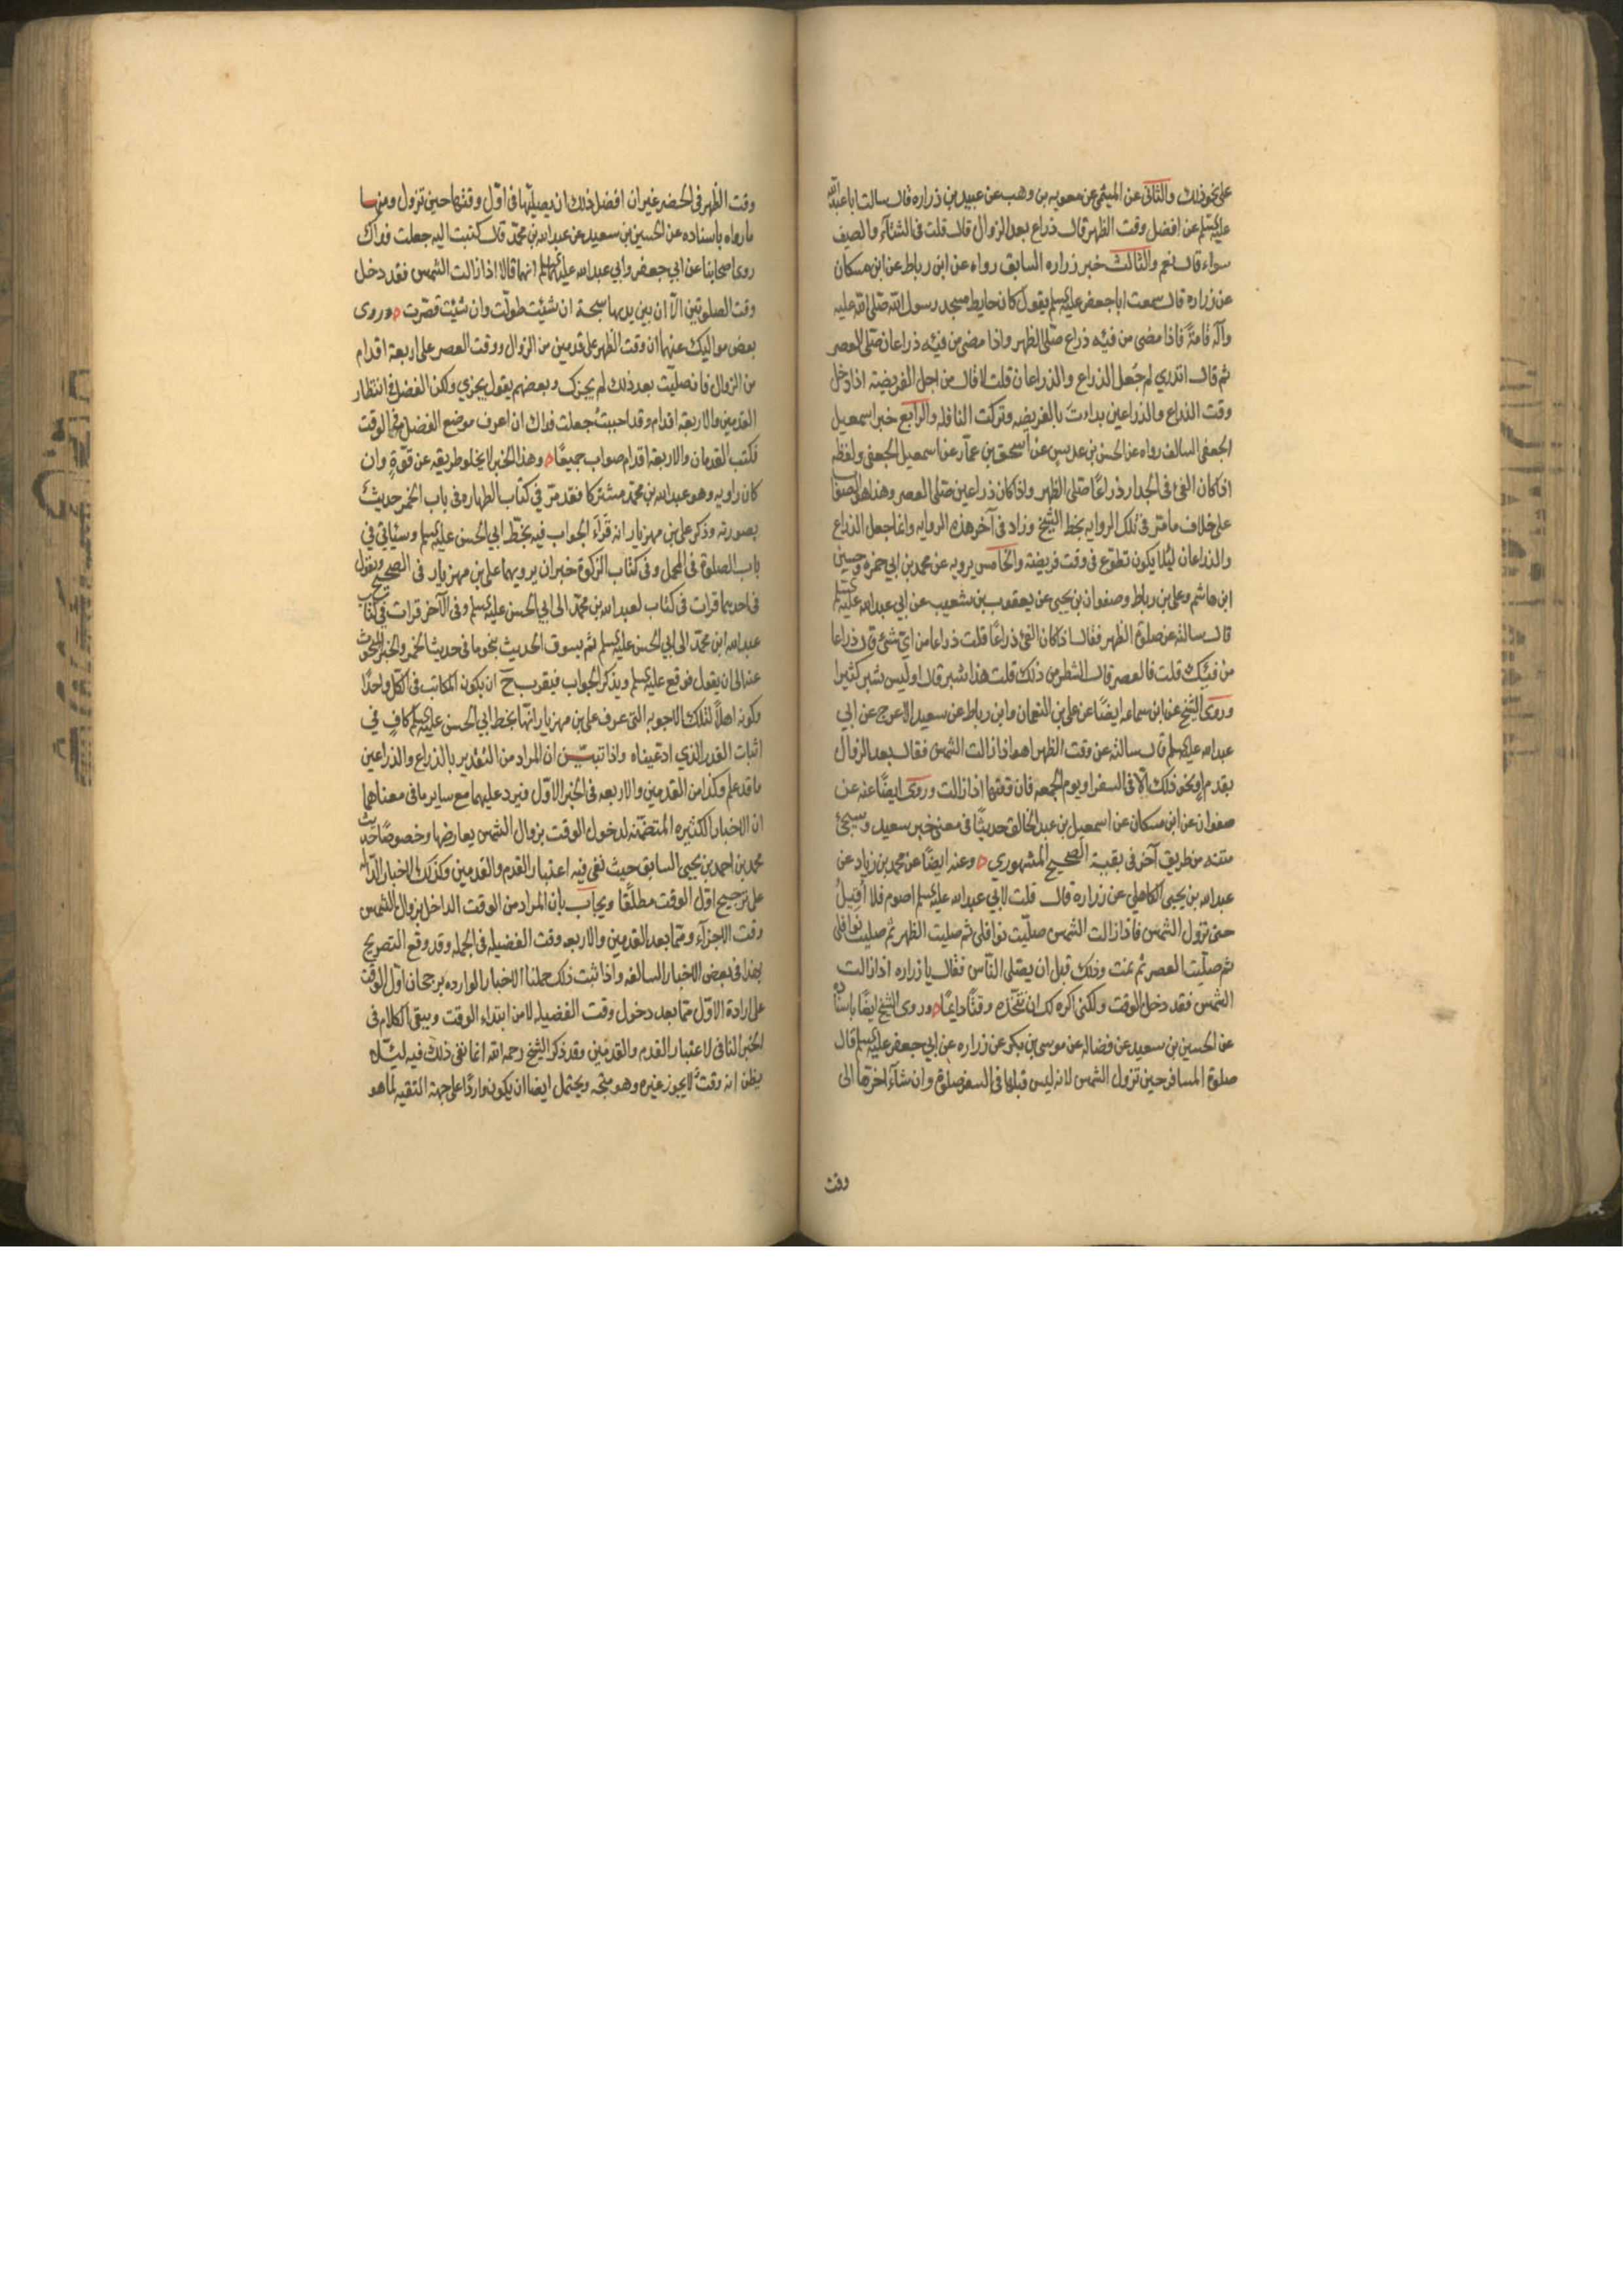 على نحو ذلك والثاني عن الميثمي عن معويه بن وهب عن عبيد بن زراره قال سالت ابا عبد الله
عليه السلم عن افضل وقت الظهر قال ذراع بعد الزوال قال قلت في الشتآء والصيف
سواء قال نعم والثالث خبر زراره السابق رواه عن ابن رباط عن ابن مسكان
عن زراره قال سمعت ابا جعفر عليه السلم يقول كان حايط مسجد رسول الله صلى الله عليه
وآله قامة فاذا مضى من فيئه ذراع صلى الظهر واذا مضى من فيئه ذراعان صلى العصر
ثم قال اتدري لم جعل الذراع والذراعان قلت لا قال من اجل الفريضة اذا دخل
وقت الذراع والذراعين بدات بالفريضه وتركت النافله والرابع خبر اسمعيل
الجعفي السالف رواه عن الحسن بن عديس عن اسحق بن عمار عن اسمعيل الجعفي ولفظه
اذا كان الفئ في الجدار ذراعًا صلى الظهر واذا كان ذراعين صلى العصر وهذا هو الصواب
على خلاف ما مر في تلك الروايه بخط الشيخ وزاد في آخر هذه الروايه وانما جعل الذراع
والذراعان ليلا يكون تطوع في وقت فريضة والخامس يرويه عن محمد بن ابي حمزه وحسين
ابن هاشم وعلي بن رباط وصفوان بن يحيى عن يعقوب بن شعيب عن ابي عبد الله عليه السلم
قال سالته عن صلوة الظهر فقال اذا كان الفئ ذراعًا قلت ذراعا من اي شئ قال ذراعا
من فيئك قلت فالعصر قال الشطر من ذلك قلت هذا شبر قال اوليس شبر كثيرا
وروى الشيخ عن ابن سماعه ايضًا عن علي بن النعمان وابن رباط عن سعيد الاعرج عن ابي
عبد الله عليه السلم قال سالته عن وقت الظهر اهو اذا زالت الشمس فقال بعد الزوال
بقدم او نحو ذلك الا في السفر او يوم الجمعه فان وقتها اذا زالت وروى ايضًا عنه عن
صفوان عن ابن مسكان عن اسمعيل بن عبد الخالق حديثًا في معنى خبر سعيد وسيجئ
متنه من طريق آخر في بقية الصحيح المشهوري وعنه ايضًا عن محمد بن زياد عن
عبد الله بن يحيى الكاهلي عن زرارة قال قلت لابي عبد الله عليه السلم اصوم فلا اقيل
حتى تزول الشمس فاذا زالت الشمس صليت نوافلي ثم صليت الظهر ثم صليت نوافلي
ثم صليت العصر ثم نمت وذلك قبل ان يصلي الناس فقال يا زراره اذا زالت
الشمس فقد دخل الوقت ولكني اكره لك ان تتخذه وقتًا دايمًا وروى الشيخ ايضًا باسناده
عن الحسين بن سعيد عن فضاله عن موسى بن بكر عن زراره عن ابي جعفر عليه السلم قال
صلوة المسافر حين تزول الشمس لانه ليس قبلها في السفر صلوة وان شآء اخرها الى
وقت
وقت الظهر في الحضر غير ان افضل ذلك ان يصليها في اول وقتها حين تزول ومنها
ما رواه باسناده عن الحسين بن سعيد عن عبد الله بن محمد قال كتبت اليه جعلت فداك
روى اصحابنا عن ابي جعفر وابي عبد الله عليهما السلم انهما قالا اذا زالت الشمس فقد دخل
وقت الصلوتين الا ان بين يديها سبحة ان شئت طولت وان شئت قصرت وروى
بعض مواليك عنهما ان وقت الظهر على قدمين من الزوال ووقت العصر على اربعة اقدام
من الزوال فان صليت بعد ذلك لم يجزك وبعضهم يقول يجزي ولكن الفضل في انتظار
القدمين والاربعة اقدام وقد احببت جعلت فداك ان اعرف موضع الفضل في الوقت
فكتب القدمان والاربعة اقدام صواب جميعًا وهذا الخبر لا يخلو طريقه عن قوة وان
كان راويه وهو عبد الله بن محمد مشتركا فقد مر في كتاب الطهاره في باب الخمر حديث
بصورته وذكر علي بن مهزيار انه قرء الجواب فيه بخط ابي الحسن عليه السلم وسيأتي في
باب الصلوة في المحمل وفي كتاب الزكوة خبران يرويهما علي بن مهزيار في الصحيح ويقول
في احدهما قرات في كتاب لعبد الله بن محمد الى ابي الحسن عليه السلم وفي الآخر قرات في كتاب
عبد الله ابن محمد الى ابي الحسن عليه السلم ثم يسوق الحديث بنحو ما في حديث الخمر والخبر المبحوث
عنه الى ان يقول فوقع عليه السلم ويذكر الجواب فيقرب ح ان يكون المكاتب في الكل واحدًا
وكونه اهلاً لتلك الاجوبه التي عرف علي بن مهزيار انها بخط ابي الحسن عليه السلم كافٍ في
اثبات القدر الذي ادعيناه واذا تبين ان المراد من التقدير بالذراع والذراعين
ما قد علم وكذا من القدمين والاربعه في الخبر الاول فيرد عليهما مع ساير ما في معناهما
ان الاخبار الكثيره المتضمنه لدخول الوقت بزوال الشمس يعارضها وخصوصًا حديث
محمد بن احمد بن يحيى السابق حيث نفى فيه اعتبار القدم والقدمين وكذلك الاخبار الدالة
على ترجيح اول الوقت مطلقًا ويجاب بان المراد من الوقت الداخل بزوال الشمس
وقت الاجزآء ومما بعد القدمين والاربعه وقت الفضيله في الجمله وقد وقع التصريح
بهذا في بعض الاخبار السالفه واذا ثبت ذلك حملنا الاخبار الوارده برجحان اول الوقت
على ارادة الاول مما بعد دخول وقت الفضيله لا من ابتداء الوقت ويبقى الكلام في
الخبر النافي لاعتبار القدم والقدمين وقد ذكر الشيخ رحمه الله انما نفى ذلك فيه ليئلا
يظن انه وقت لا يجوز غيره وهو متجه ويحتمل ايضا ان يكون واردًا على جهة التقيه لما هو